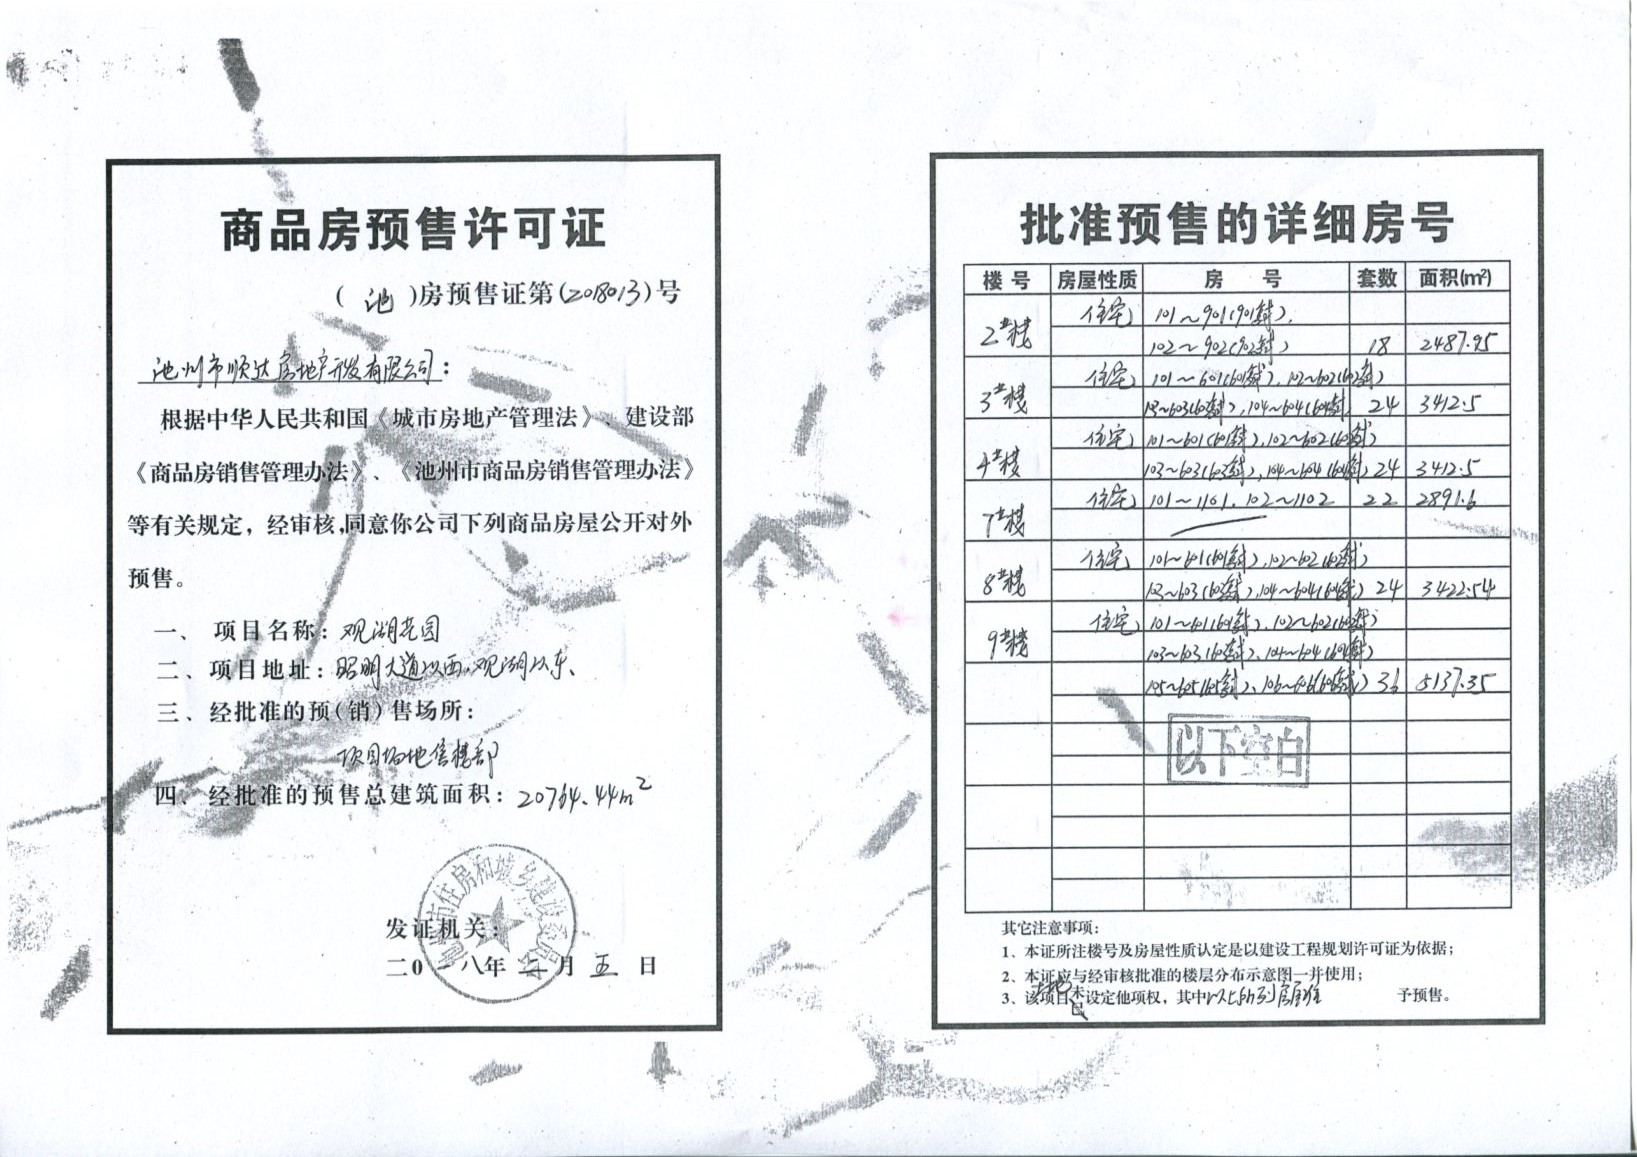 商品房预售许可证
( 池 )房预售证第(2018013)号
池州市顺达房地产开发有限公司:
根据中华人民共和国《城市房地产管理法》、建设部
《商品房销售管理办法》、《池州市商品房销售管理办法》
等有关规定，经审核,同意你公司下列商品房屋公开对外
预售。
一、 项目名称: 观湖花园
二、 项目地址: 昭明大道以西、观湖以东、
三、 经批准的预(销)售场所:
项目场地售楼部
四、 经批准的预售总建筑面积: 20764.44m²
市住房和城乡建设委员会
发证机关:
二0一八年 二月 五 日
批准预售的详细房号
楼号 房屋性质 房 号 套数 面积(m²)
2#楼 住宅 101~901(901封)、
102~902(902封) 18 2487.95
3#楼 住宅 101~601(601封)、102~602(602封)
103~603(603封)、104~604(604封) 24 3412.5
4#楼 住宅 101~601(601封)、102~602(602封)
103~603(603封)、104~604(604封) 24 3412.5
7#楼 住宅 101~1101、102~1102 22 2891.6
8#楼 住宅 101~601(601封)、102~602(602封)
103~603(603封)、104~604(604封) 24 3422.54
9#楼 住宅 101~601(601封)、102~602(602封)
103~603(603封)、104~604(604封)
105~605(605封)、106~606(606封) 36 5137.35
以下空白
其它注意事项:
1、本证所注楼号及房屋性质认定是以建设工程规划许可证为依据;
2、本证应与经审核批准的楼层分布示意图一并使用;
3、该项目土地未设定他项权，其中以上所列房屋准 予预售。